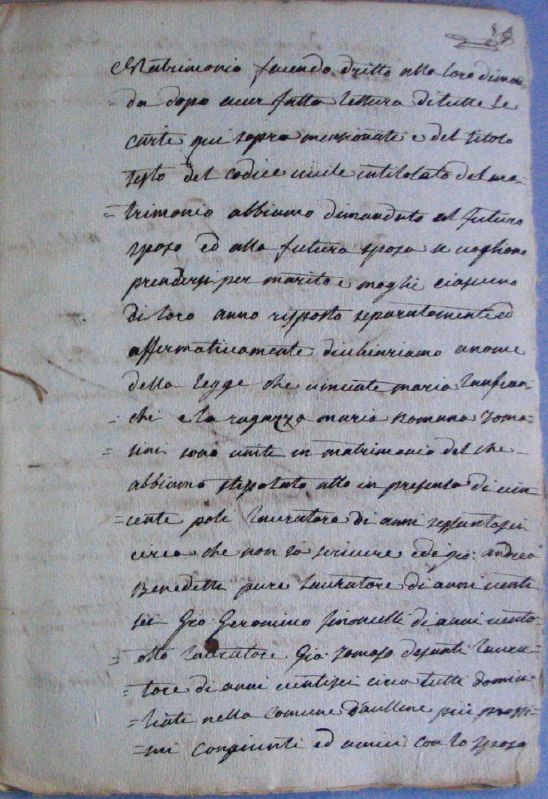 Matrimonio facendo dritto alla loro diman
da dopo aver fatto lettura di tutte le
carte qui sopra menzionate e del titolo
sesto del codice civile intitolato del ma
= trimonio abbiamo dimandato al futuro
sposo ed alla futura sposa se vogliono
prendersi per marito e moglie ciascuno
di loro anno risposto separatamente ed
affermativamente dichiariamo a nome
della legge che vincente maria lanfran
= chi e la ragazza maria Romana Toma
= sini sono uniti in matrimonio del che
abbiamo stipolato atto in presenza di vin
= cente poli lavratore di anni sessantasei
circa che non sa scrivere e di gio: andrea
Benedetti pure lavratore di anni venti
sei Gio Geronimo simonelli di anni vento
= otto lavratore Gio: Tomaso desanti lavra
= tore di anni ventisei circa tutti domici
= liati nella comune d'aullene più prossi
= mi congiunti ed amici con lo sposo